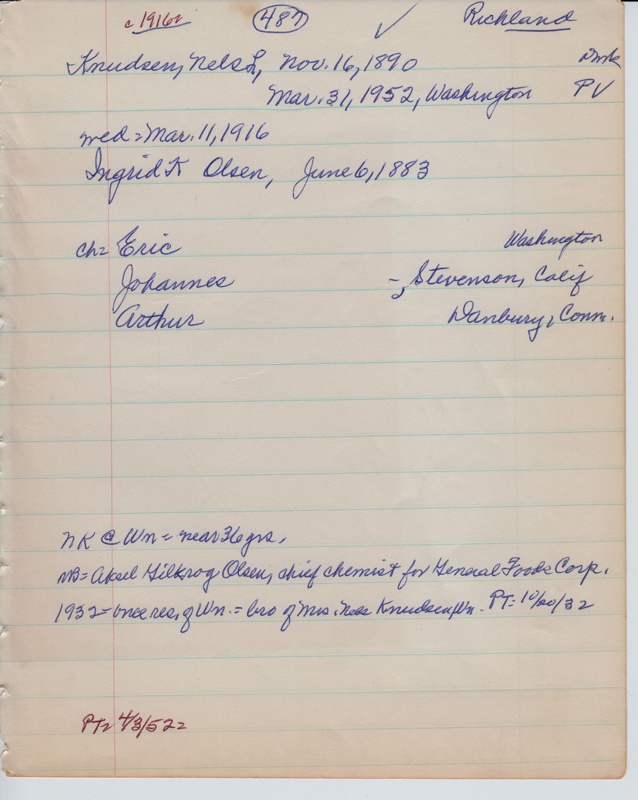 c 1916= 487 ✓ Richland
Knudsen, Nels L, Nov. 16, 1890 Dmk
Mar. 31, 1952, Washington PV
wed = Mar. 11, 1916
Ingrid K Olsen, June 6, 1883
ch= Eric Washington
Johannes -, Stevenson, Calif
Arthur Danbury, Conn.
NK @ Wn = near 36 yrs.
NB= Aksel Gilkrog Olsen, chief chemist for General Foods Corp.
1932= once res. of Wn. = bro of Mrs. Nels Knudsen, Wn. PT= 10/20/32
PT= 4/3/52=